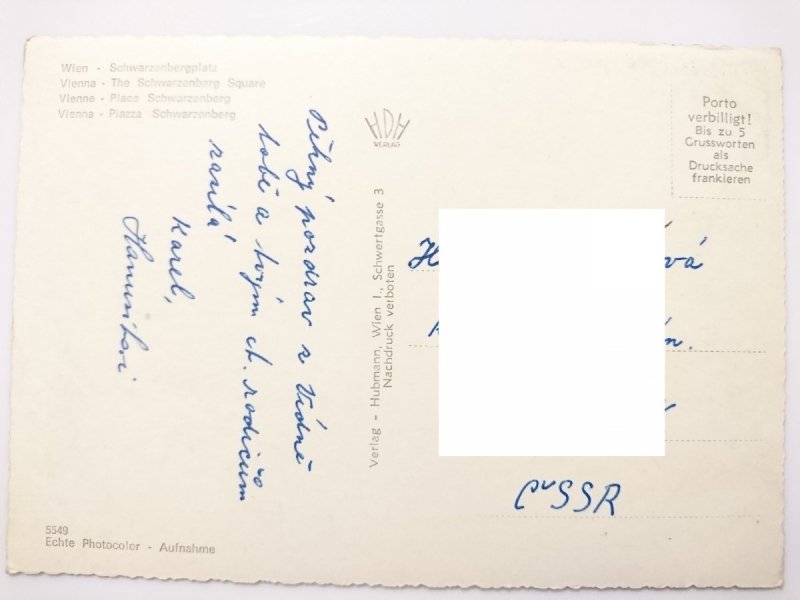 Wien - Schwarzenbergplatz
Vienna - The Schwarzenberg Square
Vienne - Place Schwarzenberg
Vienna - Piazza Schwarzenberg
Pěkný pozdrav z Vídně
tobě a tvým ct. rodičům
zasílá
Karel,
HDH
VERLAG
Verlag - Hubmann, Wien I., Schwertgasse 3
Nachdruck verboten
Porto
verbilligt!
Bis zu 5
Grussworten
als
Drucksache
frankieren
vá
n.
ČSSR
5549
Echte Photocolor - Aufnahme